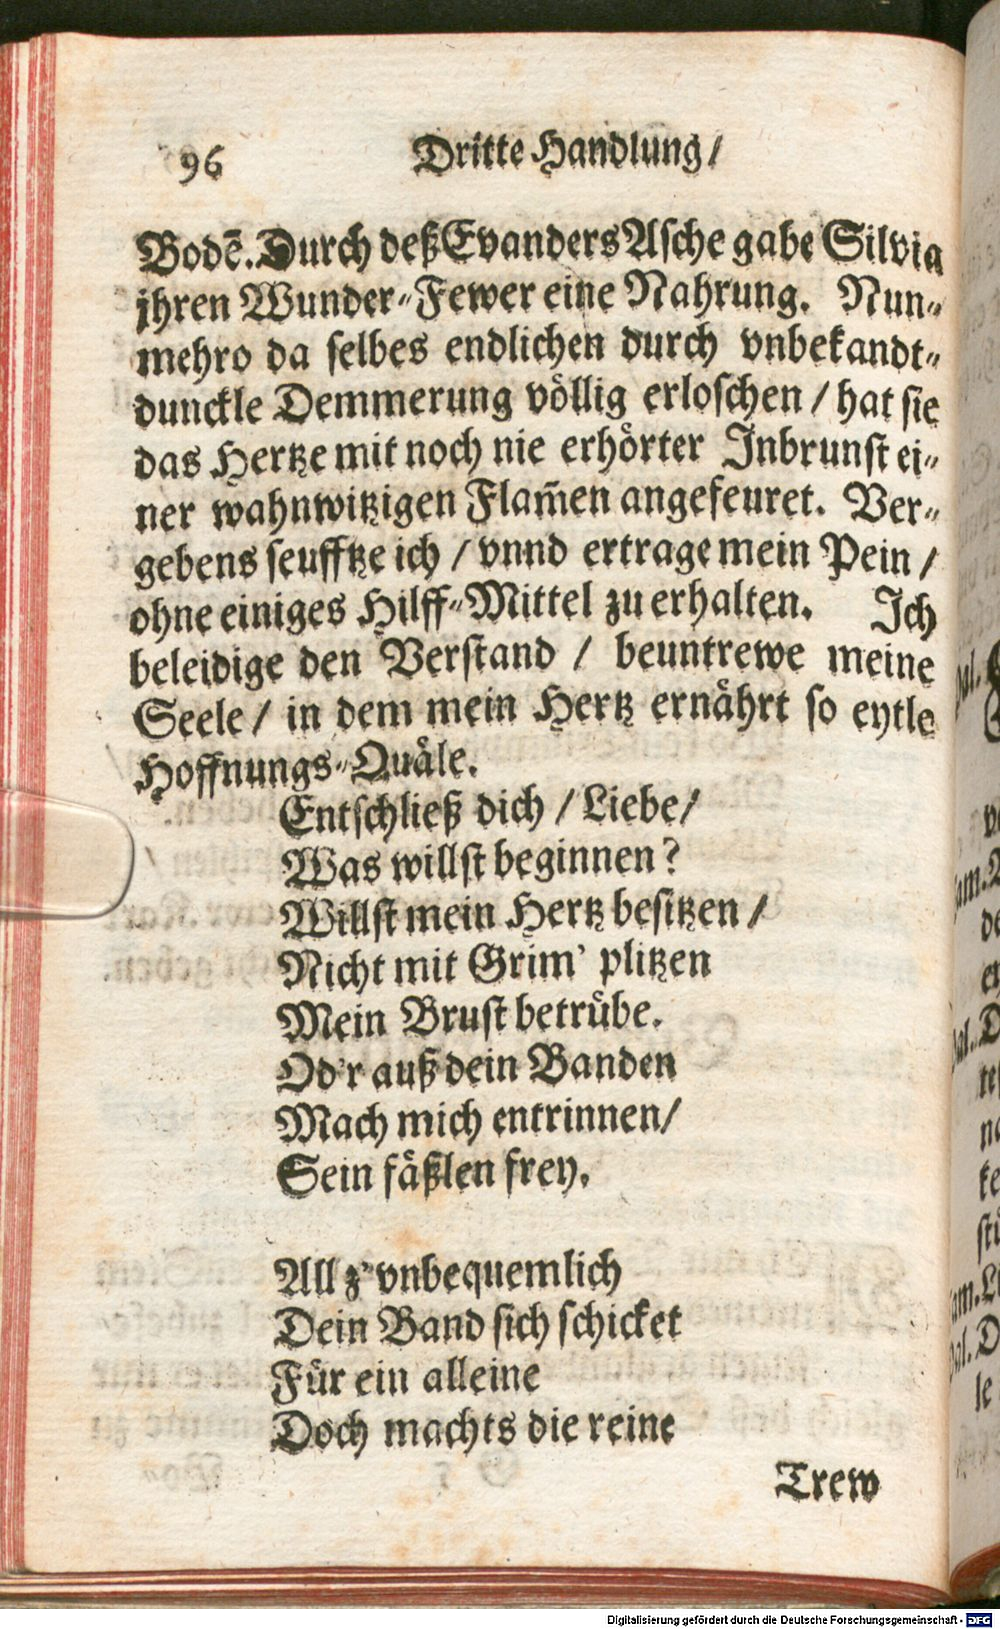 96 Dritte Handlung/
Bodē. Durch deß Evanders Asche gabe Silvia
jhren Wunder-Fewer eine Nahrung. Nun-
mehro da selbes endlichen durch vnbekandt-
dunckle Demmerung völlig erloschen / hat sie
das Hertze mit noch nie erhörter Inbrunst ei-
ner wahnwitzigen Flam̃en angefeuret. Ver-
gebens seufftze ich / vnnd ertrage mein Pein /
ohne einiges Hilff-Mittel zu erhalten. Ich
beleidige den Verstand / beuntrewe meine
Seele / in dem mein Hertz ernährt so eytle
Hoffnungs-Quäle.
Entschließ dich / Liebe/
Was willst beginnen?
Willst mein Hertz besitzen /
Nicht mit Grim' plitzen
Mein Brust betrübe.
Od'r auß dein Banden
Mach mich entrinnen/
Sein fäßlen frey.
All z' vnbequemlich
Dein Band sich schicket
Für ein alleine
Doch machts die reine
Trew
Digitalisierung gefördert durch die Deutsche Forschungsgemeinschaft - DFG